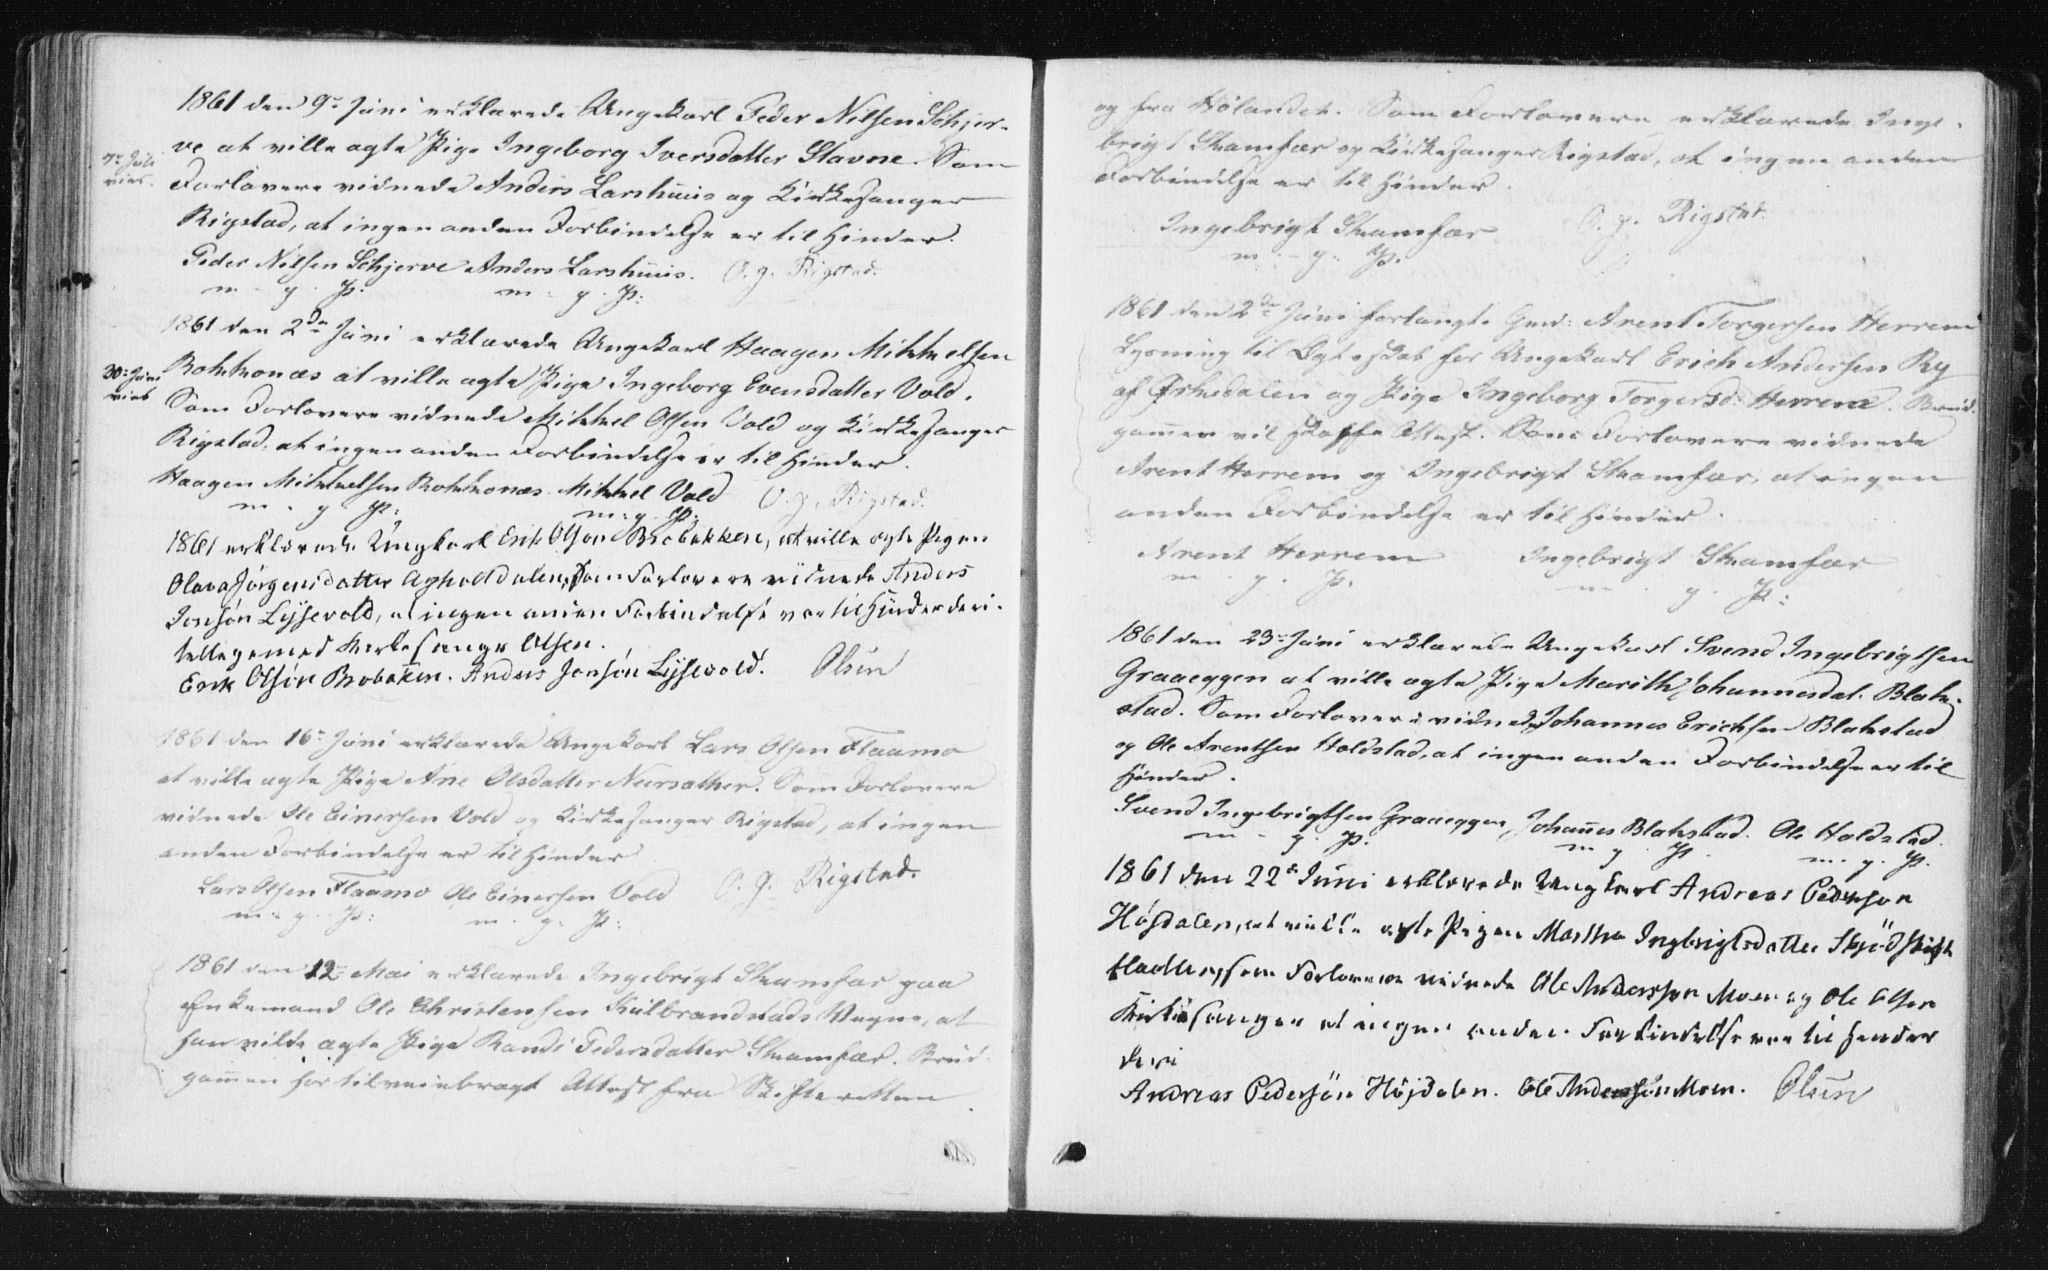 1861 den 9de Juni erklærede Ungekarl Peder Nilsen Schjer-
7de Juli
viet.
ve at ville ægte Pige Ingeborg Iversdatter Stavne. Som
Forlovere vidnede Anders Larshuus og Kirkesanger
Rigstad, at ingen anden Forbindelse er til Hinder.
Peder Nilsen Schjerve Anders Larshuus. O. J. Rigstad.
m. g. P. m. g. P:
1861 den 2den Juni erklærede Ungekarl Haagen Mikkelsen
30te Juni
viet
Rokkonæs at ville ægte Pige Ingeborg Evensdatter Vold.
Som Forlovere vidnede Mikkel Olsen Vold og Kirkesanger
Rigstad, at ingen anden Forbindelse er til Hinder.
Haagen Mikkelsen Rokkonæs. Mikkel Vold O. J. Rigstad.
m. g. P: m: g. P:
1861 erklærede Ungkarl Erik Olsøn Brobakken, at ville ægte Pigen
Olava Jørgensdatter Aghottdalen, som Forlovere vidnede Anders
Jonsøn Lysevold, at ingen anden Forbindelse var til Hinder deri.
tillegemed Kirkesanger Olsen.
Erik Olsøn Brobaken. Anders Jonsøn Lysevold. Olsen
1861 den 16de Juni erklærede Ungekarl Lars Olsen Flaamo
at ville ægte Pige Ane Olsdatter Neersæther. Som Forlovere
vidnede Ole Einersen Vold og Kirkesanger Rigstad, at ingen
anden Forbindelse er til Hinder
Lars Olsen Flaamo Ole Einersen Vold O. J. Rigstad.
m. g. P: m. g. P:
1861 den 12te Mai erklærede Ingebrigt Skamfær paa
Enkemand Ole Christensen Kulbrandstads Vegne, at
han vilde ægte Pige Randi Pedersdatter Skamfær. Brud-
gommen har tilveiebragt Attest fra Skifteretten
og fra Hølandet. Som Forlovere erklærede Inge-
brigt Skamfær og Kirkesanger Rigstad, at ingen anden
Forbindelse er til Hinder.
Ingebrigt Skamfær O. J. Rigstad.
m. g. P.
1861 den 2den Juni forlangte Gmd: Arent Torgersen Herrem
Lysning til Ægteskab for Ungekarl Erich Andersen Ry
af Ørkedalen og Pige Ingeborg Torgersd. Herrem. Brud-
gommen vil skaffe Attest. Som Forlovere vidnede
Arent Herrem og Ingebrigt Skamfær, at ingen
anden Forbindelse er til Hinder.
Arent Herrem Ingebrigt Skamfær
m. g. P. m. g. P:
1861 den 23de Juni erklærede Ungekarl Svend Ingebrigtsen
Graaeggen at ville ægte Pige Marith Johannesdat. Blok-
stad. Som Forlovere vidnede Johannes Erichsen Blokstad
og Ole Arentsen Holdstad, at ingen anden Forbindelse er til
Hinder.
Svend Ingebrigtsen Graaeggen Johannes Blokstad. Ole Holdstad.
m. g. P. m g. P. m. g. P.
1861 den 22de Juni erklærede Ungkarl Andreas Pedersøn
Højdalen, at ville ægte Pigen Martha Ingbrigtsdatter
som Forlovere vidnede Ole Andersøn Moen og Ole Olsen
Kirkesanger at ingen anden Forbindelse var til Hender
deri
Andreas Pedersøn Højdalen. Ole Andersøn Moen. Olsen